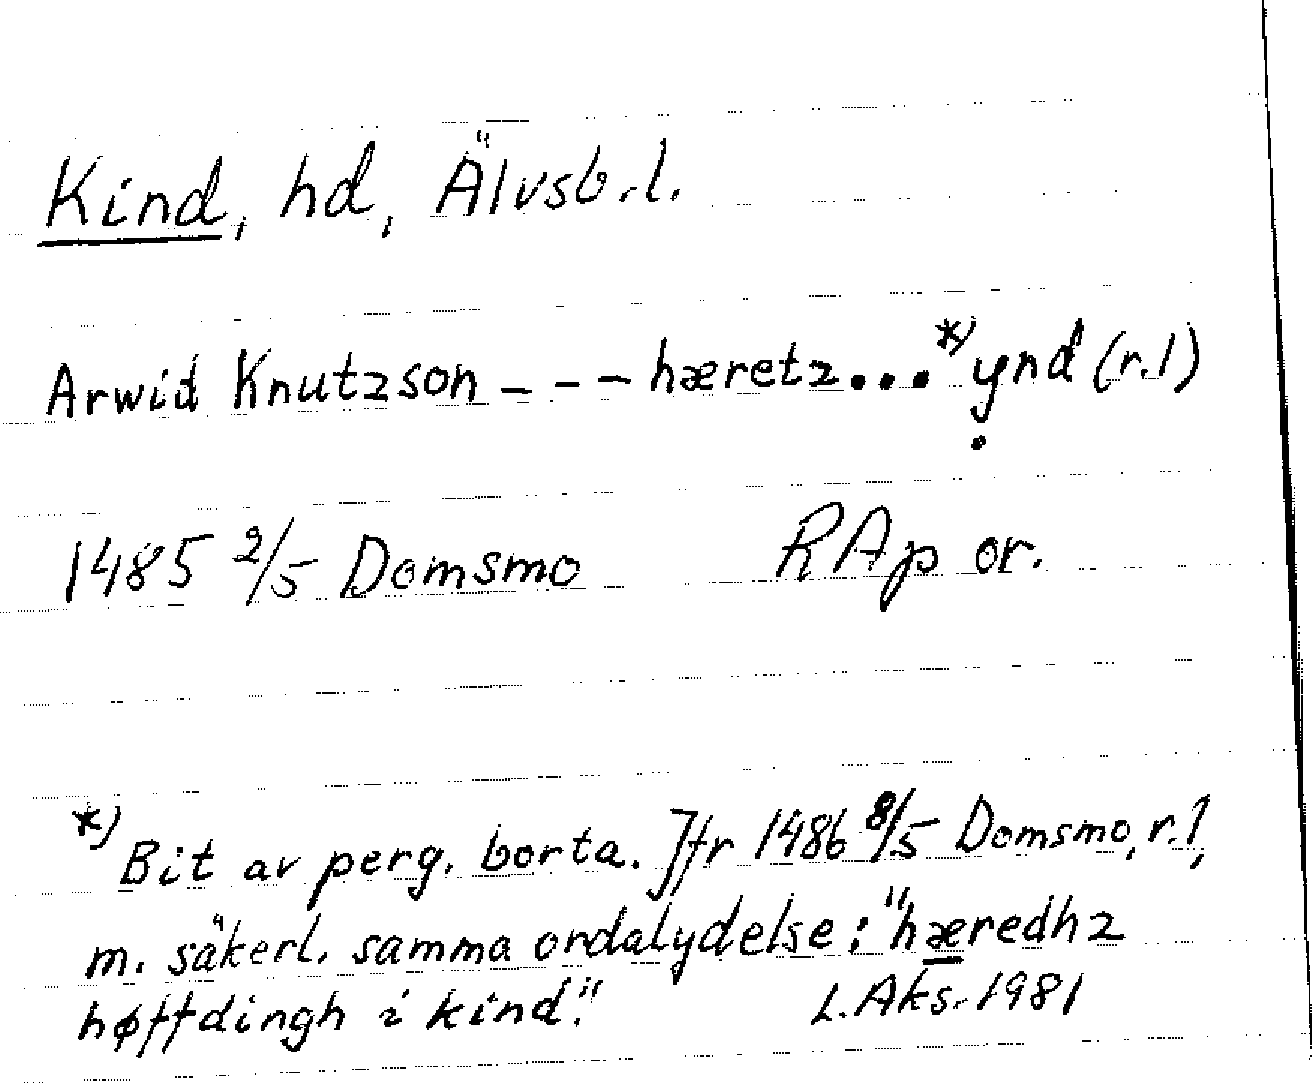 Kind, hd, Älvsb.l.
Arwid Knutzson - - - hæretz...*) ynd (r.1)
1485 2/5 Domsmo RAp or.
*) Bit av perg. borta. Jfr 1486 8/5 Domsmo, r.1,
m. säkerl. samma ordalydelse: "hæredhz
høffdingh i kind". L.Aks. 1981